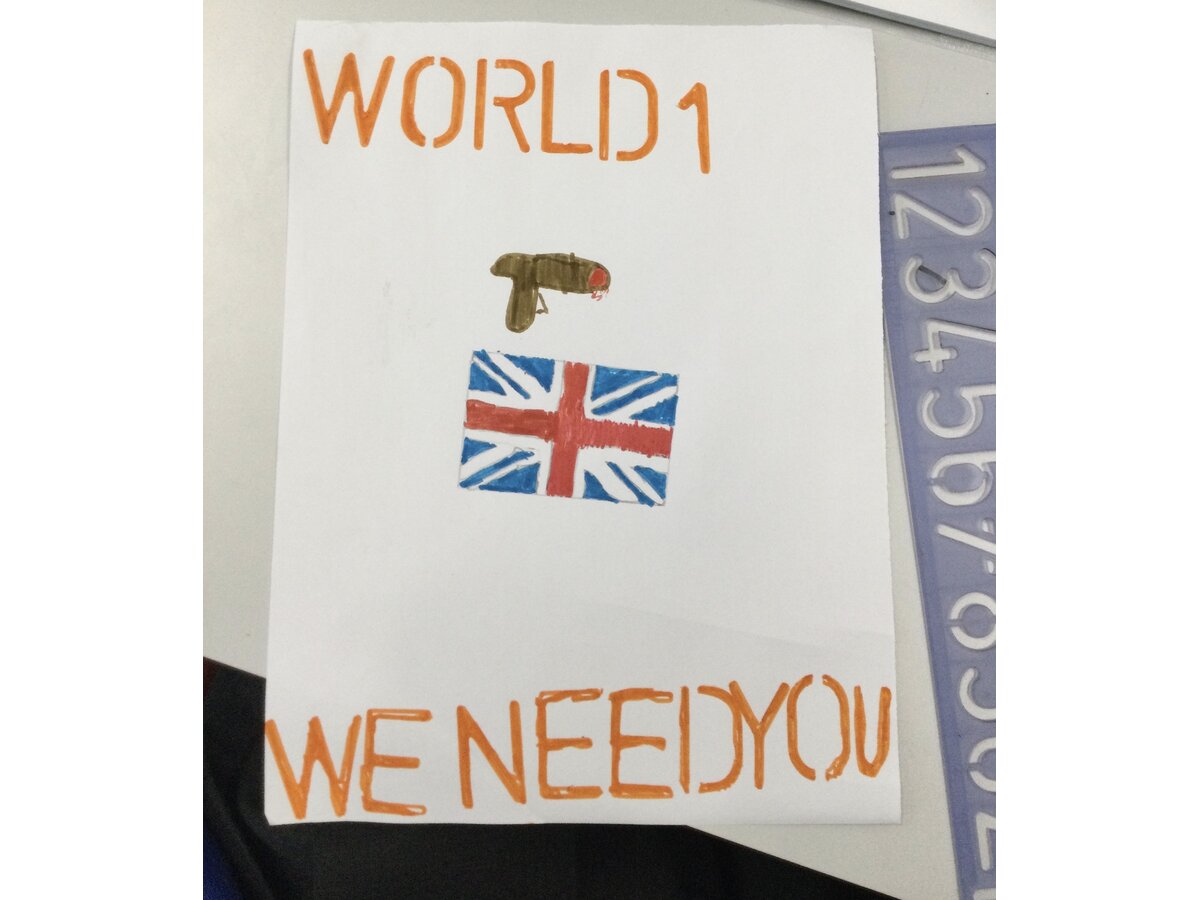 WORLD 1
WE NEED YOU
1234567890